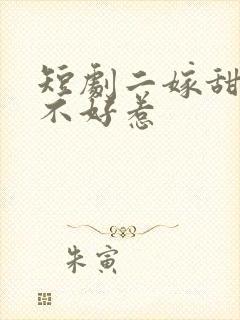 短劇二嫁甜
不好惹
朱寅